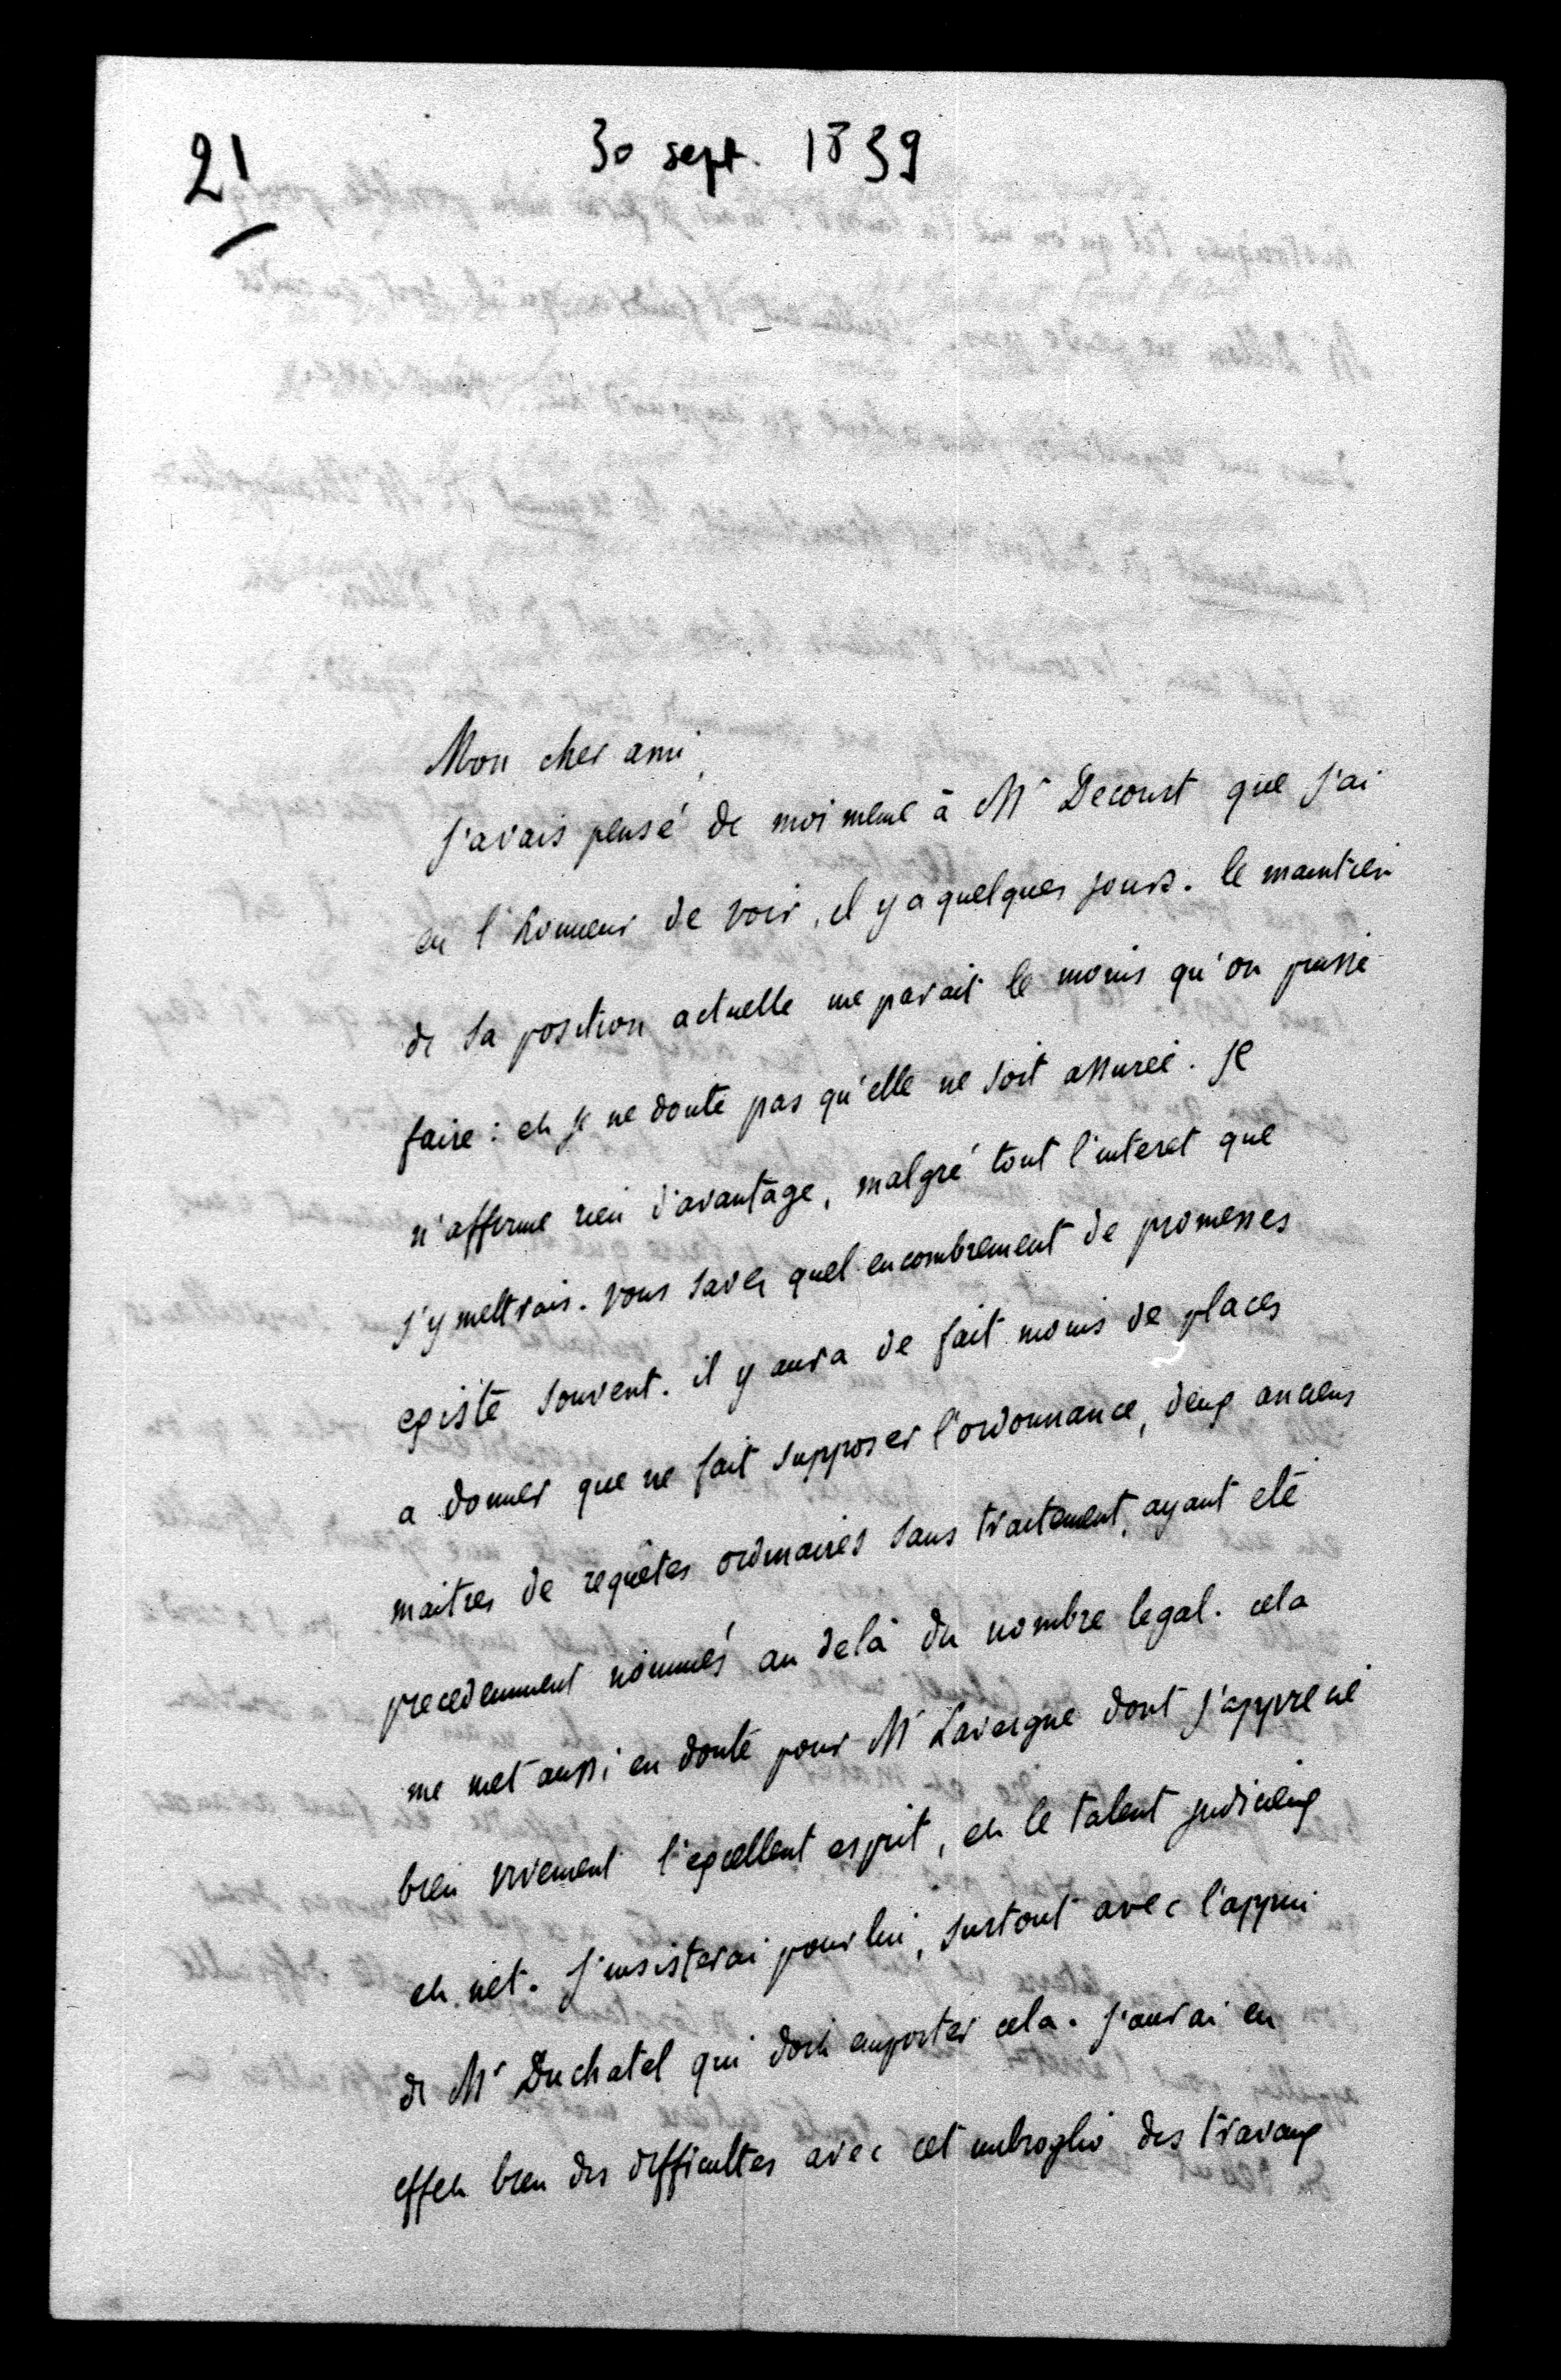 21
30 sept. 1839
Mon cher ami,
J'avais pensé de moi meme à Mr Decourt que j'ai
eu l'honneur de voir, il y a quelques jours. le maintien
de sa position actuelle me parait le moins qu'on puisse
faire : et je ne doute pas qu'elle ne soit assurée. Je
n'affirme rien d'avantage, malgré tout l'interet que
j'y mettrais. vous savez quel encombrement de promesses
existe souvent. il y aura de fait moins de places
a donner que ne fait supposer l'ordonnance, deux anciens
maitres de requêtes ordinaires sans traitement, ayant eté
precedemment nommés au delà du nombre legal. cela
me met aussi en doute pour Mr Lavergne dont j'apprecie
bien vivement l'excellent esprit, et le talent judicieux
et net. J'insisterai pour lui, surtout avec l'appui
de Mr Duchatel qui doit emporter cela. j'aurai eu
effet bien des difficultes avec cet imbroglio des travaux